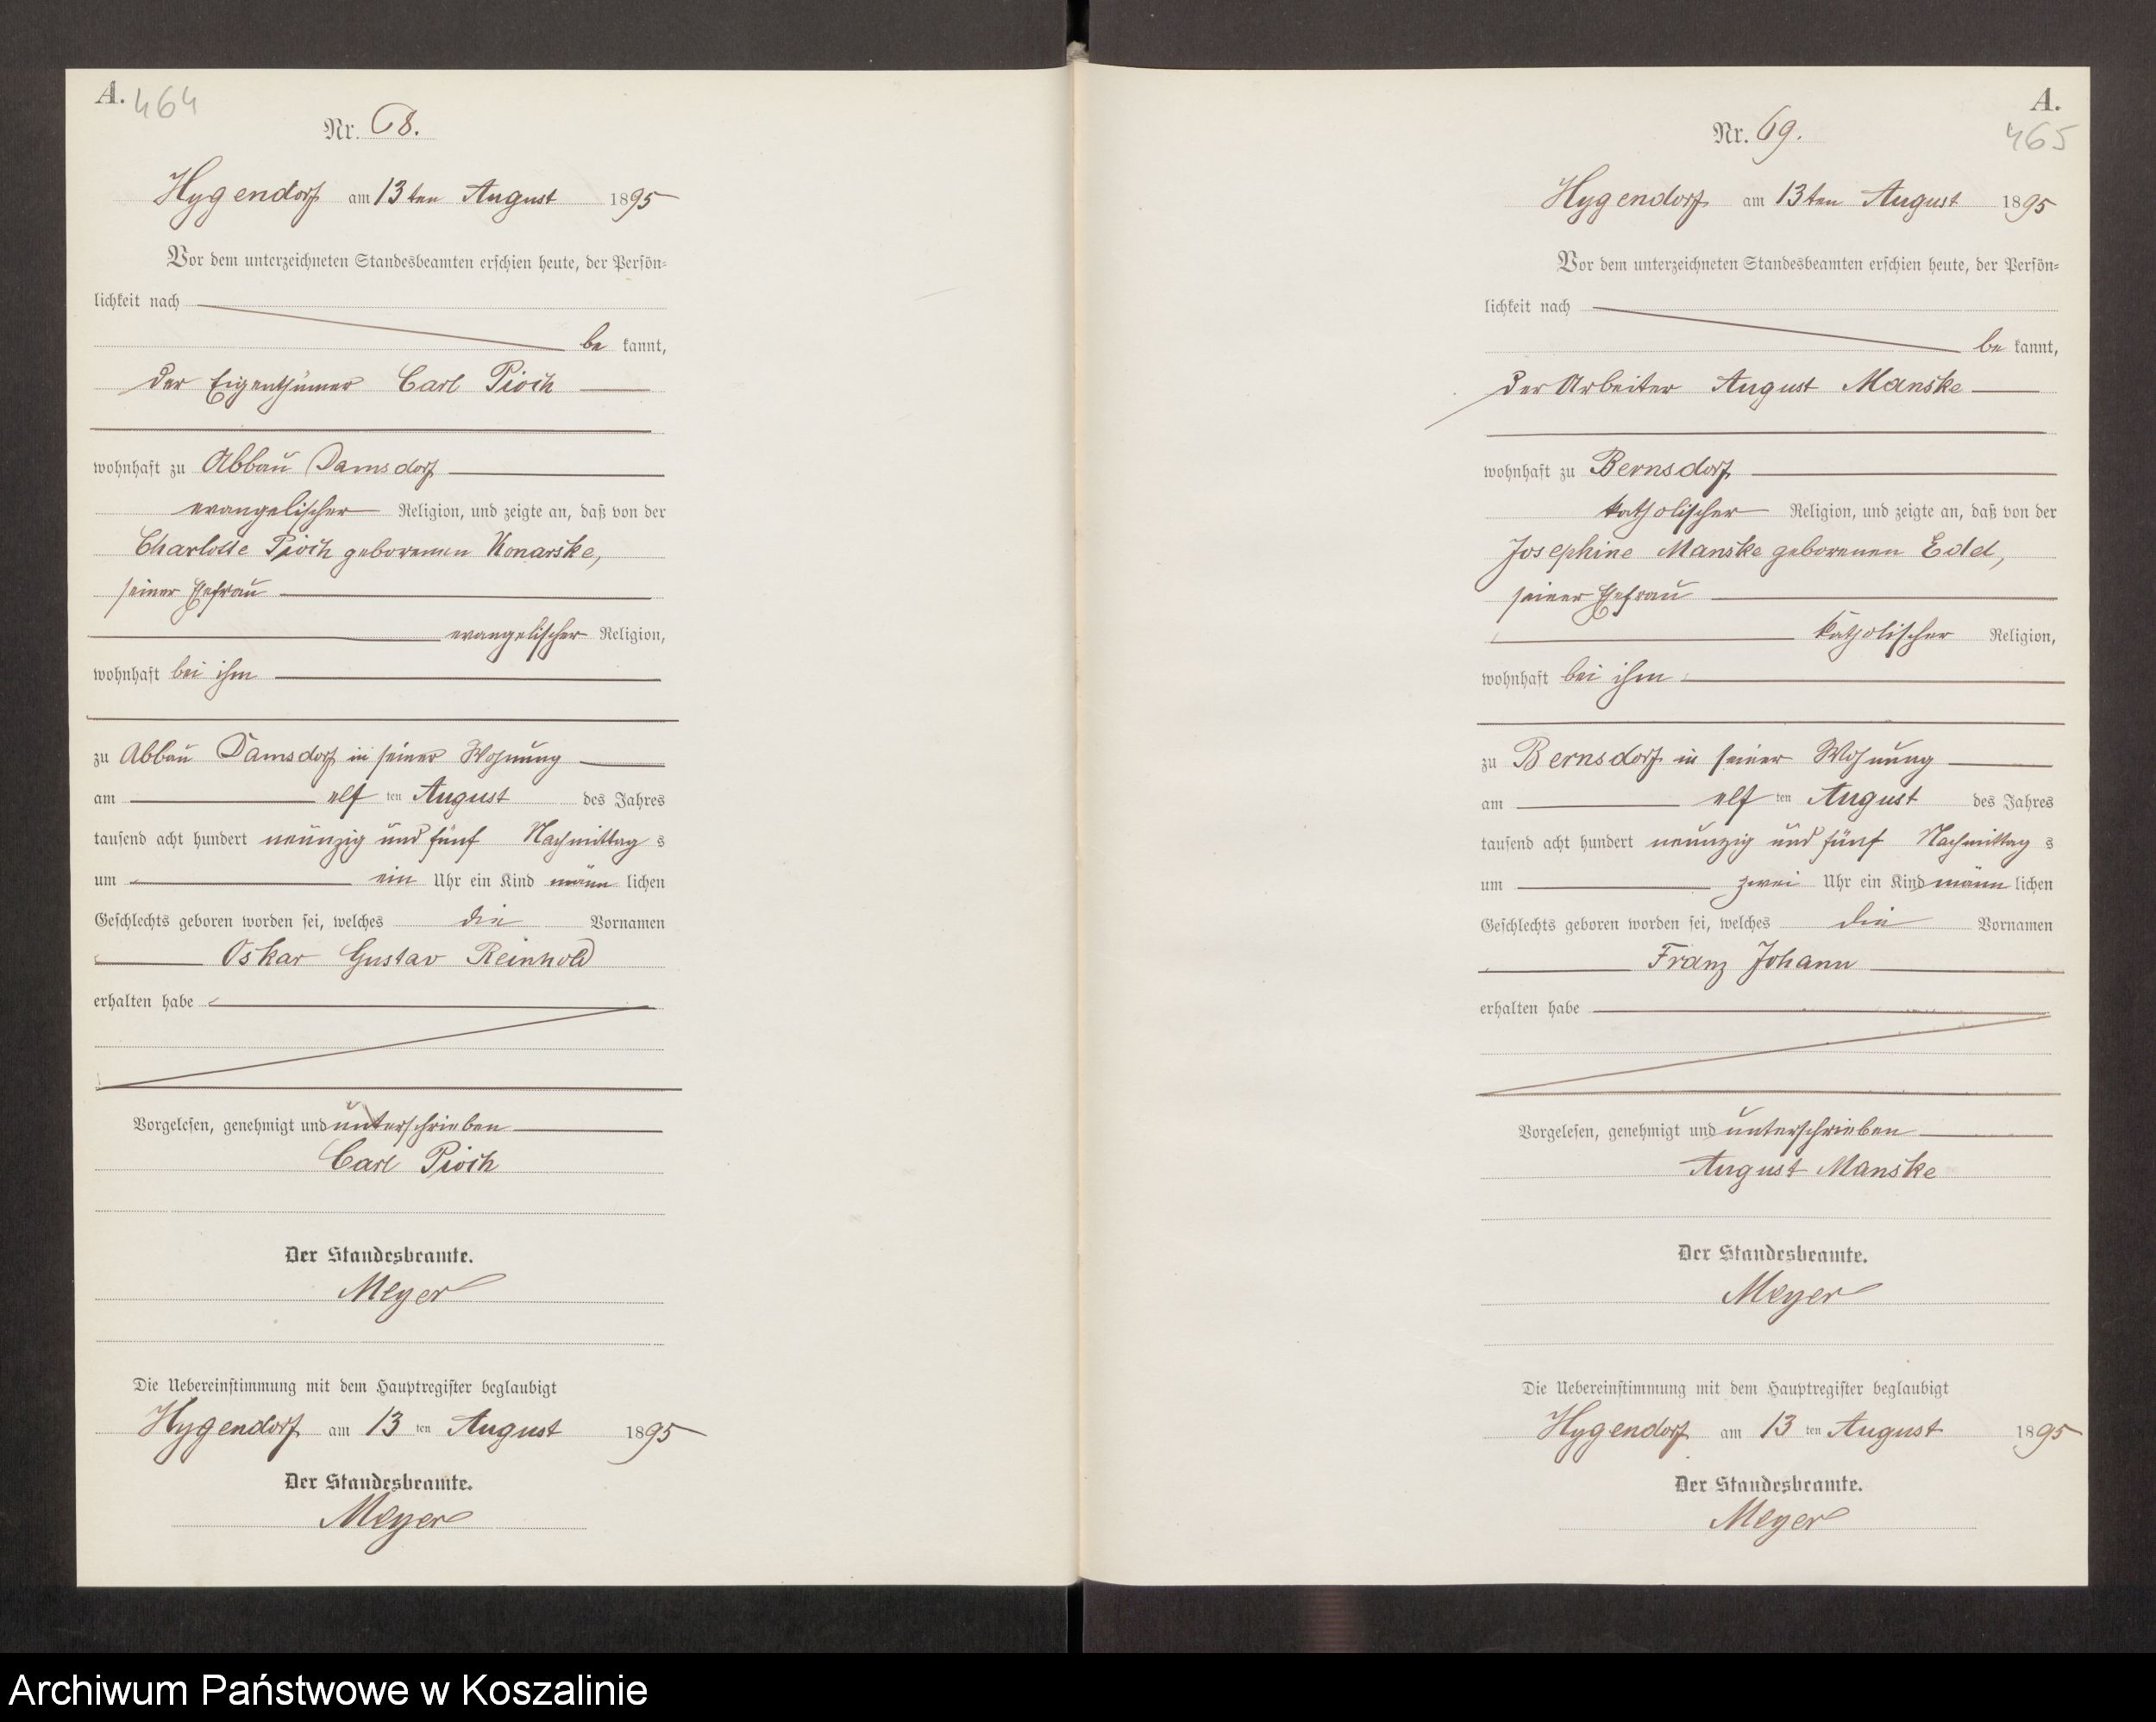 A.
464
Nr. 68.
Hygendorf am 13ten August 1895
Vor dem unterzeichneten Standesbeamten erschien heute, der Persön-
lichkeit nach
be kannt,
der Eigenthümer Carl Pioch
wohnhaft zu Abbau Damsdorf
evangelischer Religion, und zeigte an, daß von der
Charlotte Pioch geborenen Konarske,
seiner Ehefrau
evangelischer Religion,
wohnhaft bei ihm
zu Abbau Damsdorf in seiner Wohnung
am elf ten August des Jahres
tausend acht hundert neunzig und fünf Nachmittag s
um ein Uhr ein Kind männ lichen
Geschlechts geboren worden sei, welches die Vornamen
Oskar Gustav Reinhold
erhalten habe
Vorgelesen, genehmigt und unterschrieben
Carl Pioch
Der Standesbeamte.
Meyer
Die Uebereinstimmung mit dem Hauptregister beglaubigt
Hygendorf am 13 ten August 1895
Der Standesbeamte.
Meyer
A.
465
Nr. 69.
Hygendorf am 13ten August 1895
Vor dem unterzeichneten Standesbeamten erschien heute, der Persön-
lichkeit nach
be kannt,
der Arbeiter August Manske
wohnhaft zu Bernsdorf
katholischer Religion, und zeigte an, daß von der
Josephine Manske geborenen Edel,
seiner Ehefrau
katholischer Religion,
wohnhaft bei ihm
zu Bernsdorf in seiner Wohnung
am elf ten August des Jahres
tausend acht hundert neunzig und fünf Nachmittag s
um zwei Uhr ein Kind männ lichen
Geschlechts geboren worden sei, welches die Vornamen
Franz Johann
erhalten habe
Vorgelesen, genehmigt und unterschrieben
August Manske
Der Standesbeamte.
Meyer
Die Uebereinstimmung mit dem Hauptregister beglaubigt
Hygendorf am 13 ten August 1895
Der Standesbeamte.
Meyer
Archiwum Państwowe w Koszalinie